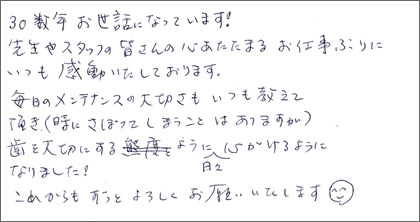 30数年お世話になっています!
先生やスタッフの皆さんの心あたたまるお仕事ぶりに
いつも感動いたしております。
毎日のメンテナンスの大切さもいつも教えて
頂き、(時にさぼってしまうことはありますが)
歯を大切にする ように日々心がけるように
なりました!
これからもずうっとよろしくお願いいたします